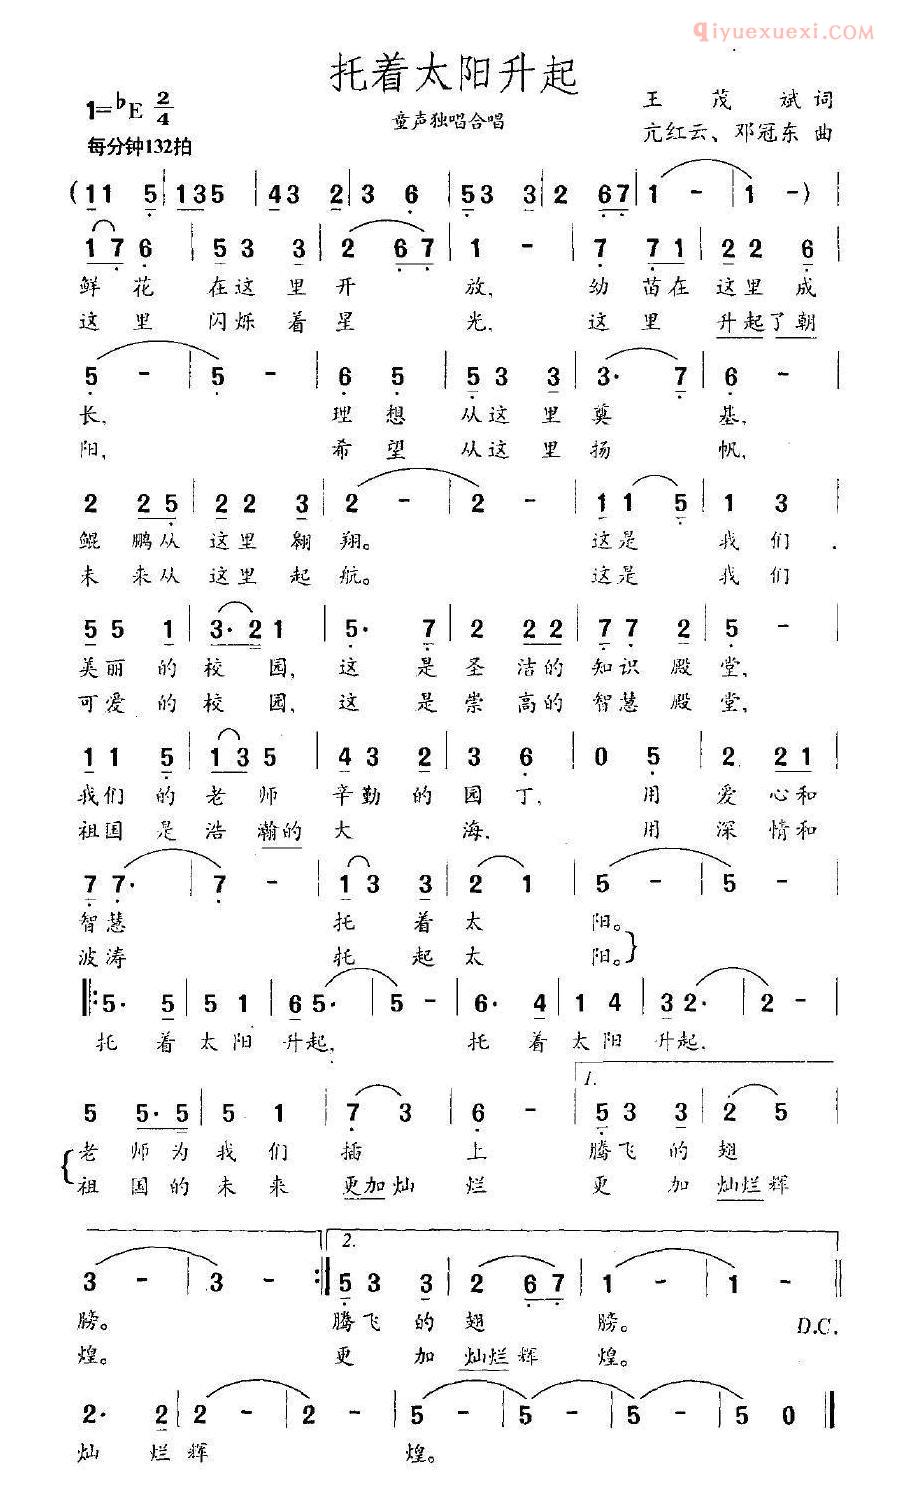 qiyuexuexi.COM
托着太阳升起
1=♭E 2/4
王茂斌 词
童声独唱合唱
亢红云、邓冠东 曲
每分钟132拍
(11 5 | 135 | 43 2 | 3 6 | 53 3 | 2 67 | 1 - | 1 - ) |
176 | 53 3 | 2 67 | 1 - | 7 71 | 22 6 |
鲜花 在这里开 放, 幼苗在这里成
这里 闪烁着星 光, 这里 升起了朝
5 - | 5 - | 6 5 | 53 3 | 3· 7 | 6 - |
长, 理想 从这里奠 基,
阳, 希望 从这里扬 帆,
2 25 | 22 3 | 2 - | 2 - | 11 5 | 1 3 |
鲲鹏从 这里翱 翔。 这是 我们
未来从 这里起 航。 这是 我们
55 1 | 3·21 | 5· 7 | 2 22 | 77 2 | 5 - |
美丽的校园, 这是圣洁的知识殿堂,
可爱的校园, 这是崇高的智慧殿堂,
11 5 | 135 | 43 2 | 3 6 | 0 5 | 2 21 |
我们的老师 辛勤的园丁, 用爱心和
祖国是浩瀚的大海, 用深情和
77· | 7 - | 13 3 | 2 1 | 5 - | 5 - |
智慧 托着太 阳。
波涛 托起太 阳。}
‖: 5· 5 | 5 1 | 65· | 5 - | 6· 4 | 1 4 | 32· | 2 - |
托着太阳 升起, 托着太阳 升起,
1.
5 5·5 | 5 1 | 7 3 | 6 - | 53 3 | 2 5 |
{老师为我们插上 腾飞的翅
祖国的未来 更加灿烂 更加灿烂辉
2.
3 - | 3 - :‖ 53 3 | 2 67 | 1 - | 1 - ‖
膀。 腾飞的翅 膀。 D.C.
煌。 更加灿烂辉 煌。
2· 2 | 2 - | 2 - | 5 - | 5 - | 5 - | 5 0 ‖
灿烂辉 煌。